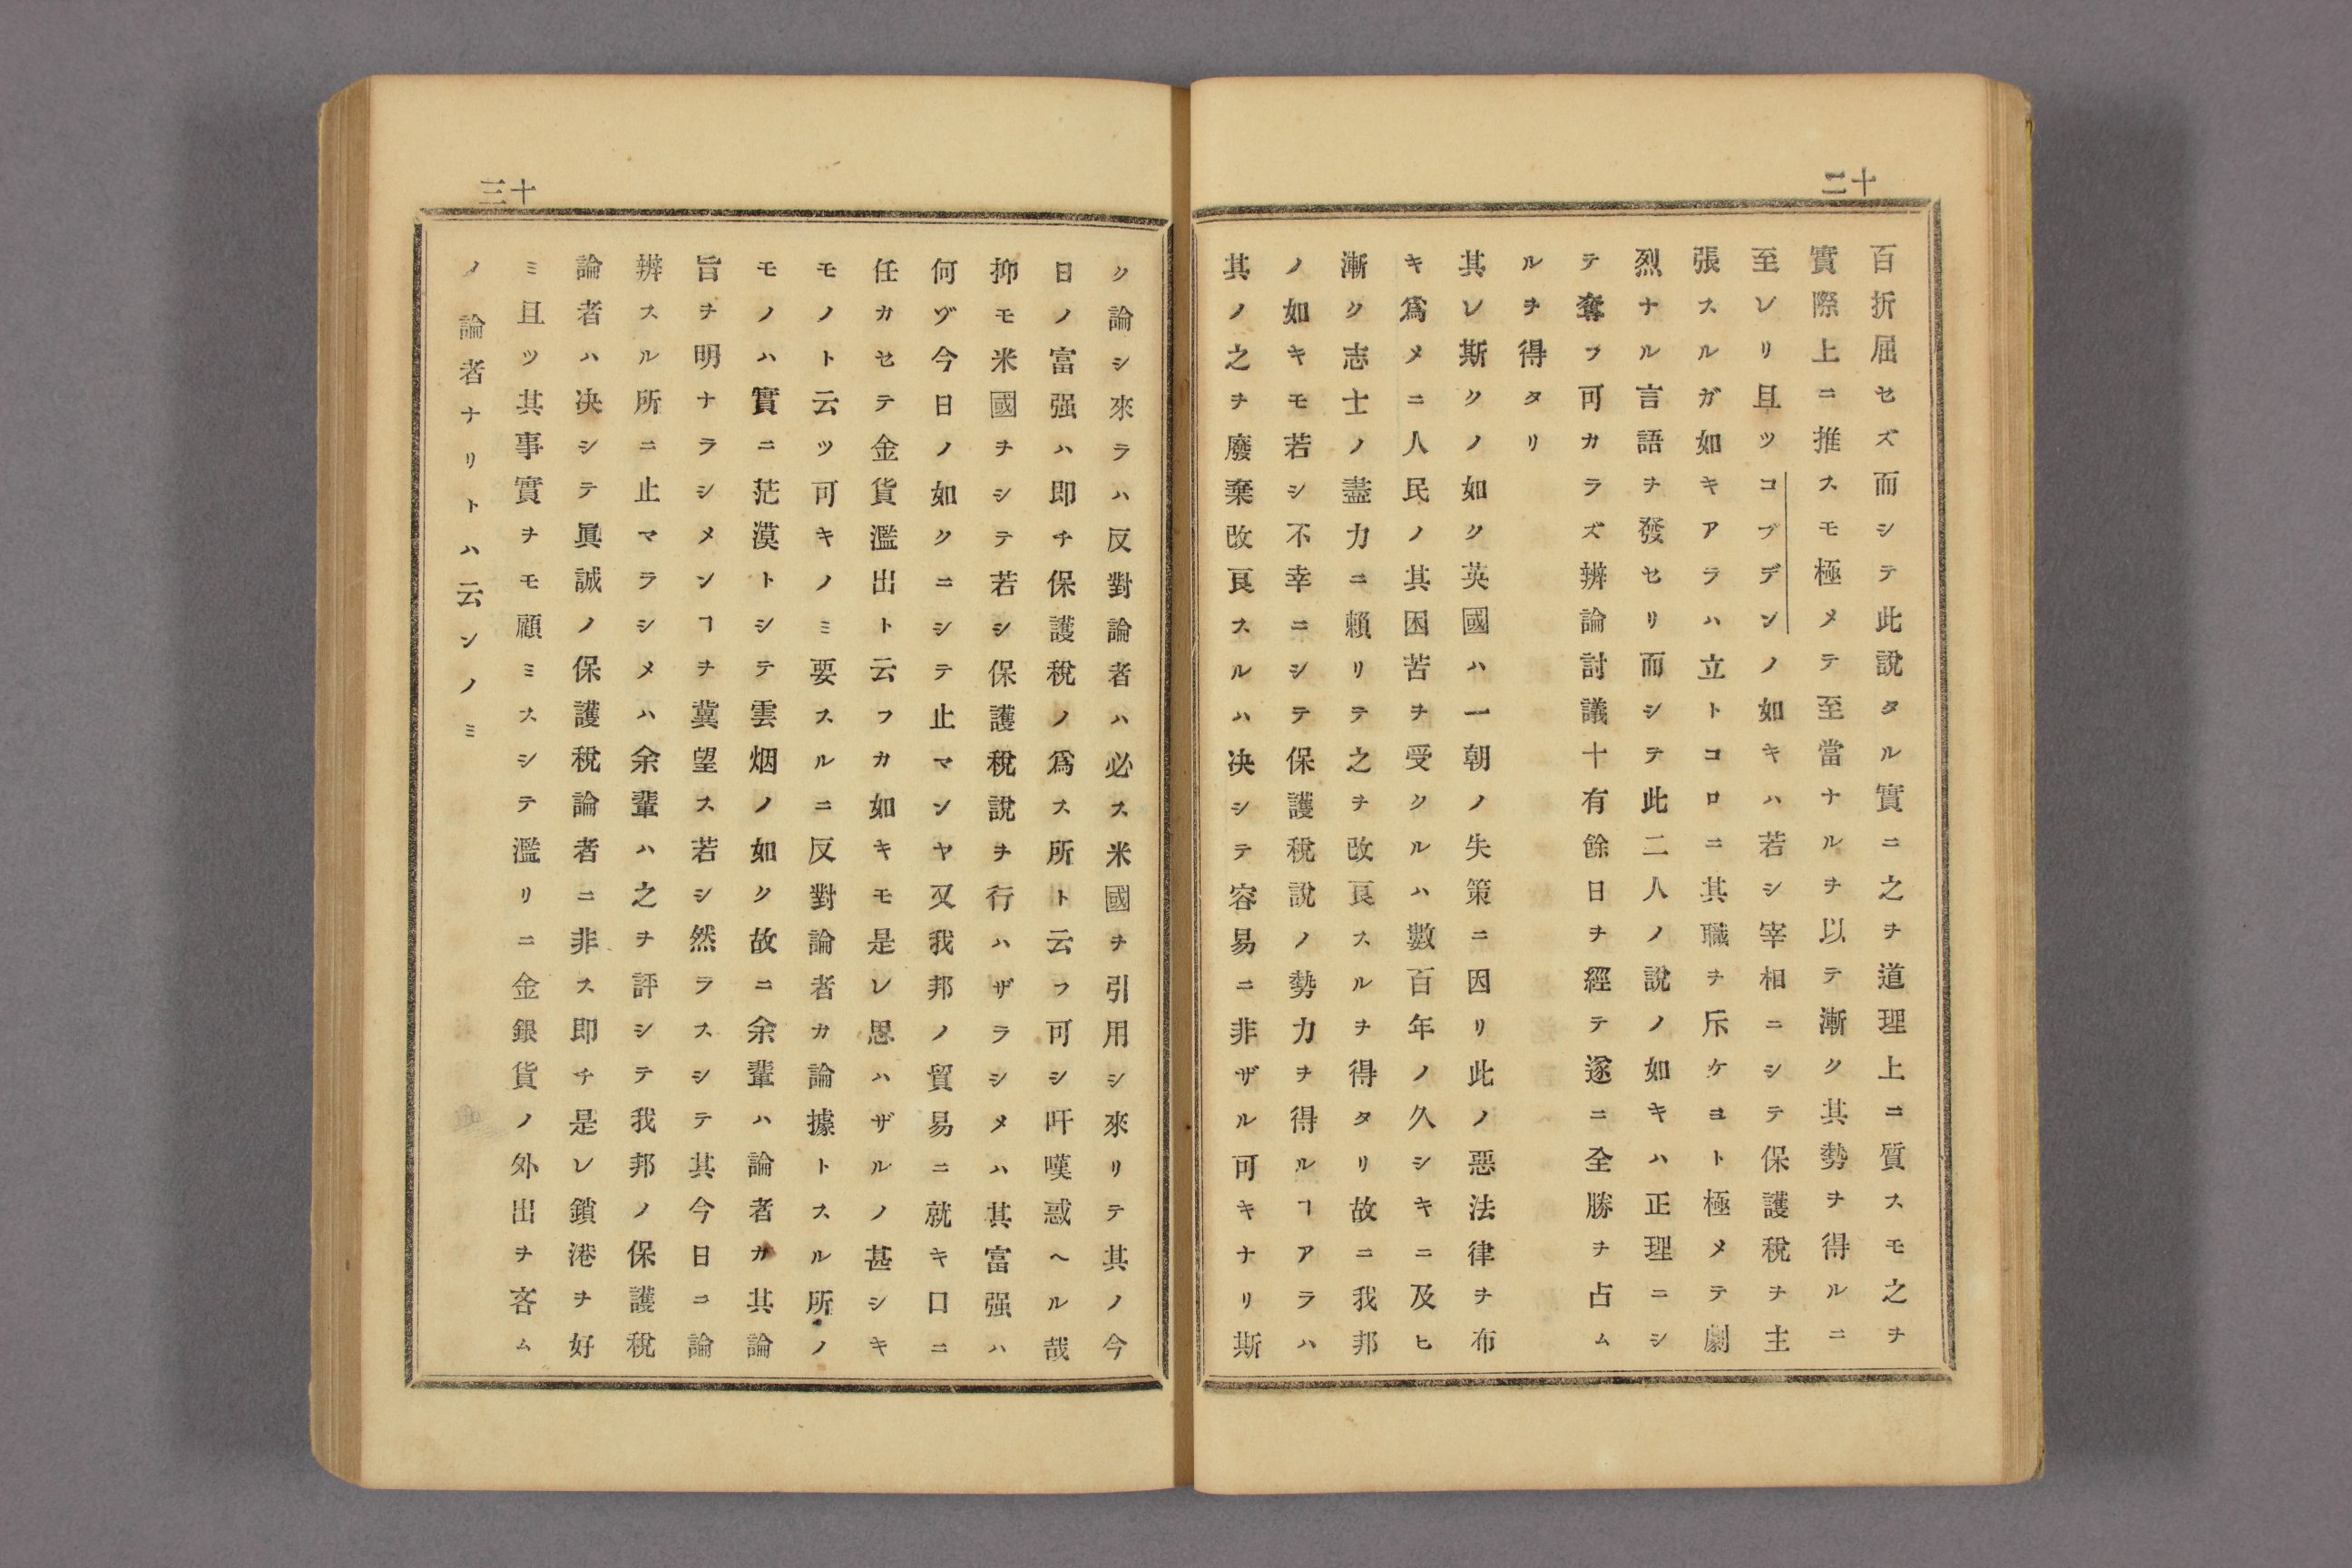 十二
百折屈セズ而シテ此說タル實ニ之ヲ道理上ニ質スモ之ヲ
實際上ニ推スモ極メテ至當ナルヲ以テ漸ク其勢ヲ得ルニ
至レリ且ツコブデンノ如キハ若シ宰相ニシテ保護稅ヲ主
張スルガ如キアラハ立トコロニ其職ヲ斥ケヨト極メテ劇
烈ナル言語ヲ發セリ而シテ此二人ノ說ノ如キハ正理ニシ
テ奪フ可カラズ辨論討議十有餘日ヲ經テ遂ニ全勝ヲ占ム
ルヲ得タリ
其レ斯クノ如ク英國ハ一朝ノ失策ニ因リ此ノ惡法律ヲ布
キ爲メニ人民ノ其困苦ヲ受クルハ數百年ノ久シキニ及ヒ
漸ク志士ノ盡力ニ賴リテ之ヲ改良スルヲ得タリ故ニ我邦
ノ如キモ若シ不幸ニシテ保護稅說ノ勢力ヲ得ルヿアラハ
其ノ之ヲ廢棄改良スルハ决シテ容易ニ非ザル可キナリ斯
十三
ク論シ來ラハ反對論者ハ必ス米國ヲ引用シ來リテ其ノ今
日ノ富强ハ即チ保護稅ノ爲ス所ト云フ可シ吁嘆惑ヘル哉
抑モ米國ヲシテ若シ保護稅說ヲ行ハザラシメハ其富强ハ
何ヅ今日ノ如クニシテ止マンヤ又我邦ノ貿易ニ就キ口ニ
任カセテ金貨濫出ト云フカ如キモ是レ思ハザルノ甚シキ
モノト云ツ可キノミ要スルニ反對論者カ論據トスル所ノ
モノハ實ニ茫漠トシテ雲烟ノ如ク故ニ余輩ハ論者カ其論
旨ヲ明ナラシメンヿヲ冀望ス若シ然ラスシテ其今日ニ論
辨スル所ニ止マラシメハ余輩ハ之ヲ評シテ我邦ノ保護稅
論者ハ决シテ眞誠ノ保護稅論者ニ非ス即チ是レ鎖港ヲ好
ミ且ツ其事實ヲモ顧ミスシテ濫リニ金銀貨ノ外出ヲ吝ム
ノ論者ナリトハ云ンノミ